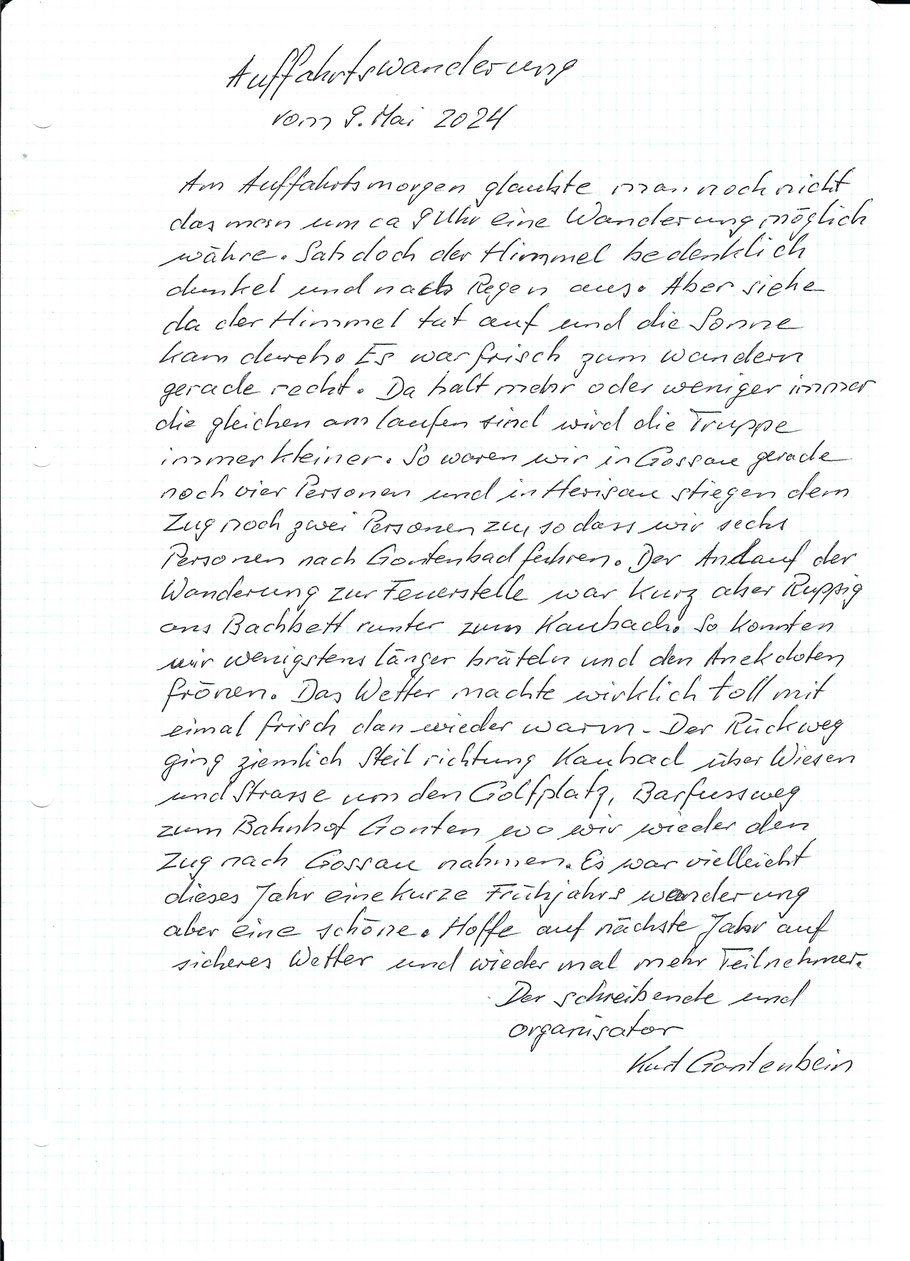 Auffahrtswanderung
vom 9. Mai 2024
Am Auffahrtsmorgen glaubte man noch nicht
das man um ca 9 Uhr eine Wanderung möglich
währe. Sah doch der Himmel bedenklich
dunkel und nach Regen aus. Aber siehe
da der Himmel tat auf und die Sonne
kam durch. Es war frisch zum wandern
gerade recht. Da halt mehr oder weniger immer
die gleichen am laufen sind wird die Truppe
immer kleiner. So waren wir in Gossau gerade
noch vier Personen und in Herisau stiegen dem
Zug noch zwei Personen zu, so dass wir sechs
Personen nach Gontenbad fuhren. Der Andauf der
Wanderung zur Feuerstelle war kurz aber Ruppig
ans Bachbett runter zum Kaubach. So konnten
wir wenigstens länger bräteln und den Anekdoten
frönen. Das Wetter machte wirklich toll mit
eimal frisch dan wieder warm. Der Rückweg
ging ziemlich Steil richtung Kaubad über Wiesen
und Strasse um den Golfplatz, Barfussweg
zum Bahnhof Gonten wo wir wieder den
Zug nach Gossau nahmen. Es war vielleicht
dieses Jahr eine kurze Frühjahrs wanderung
aber eine schöne. Hoffe auf nächste Jahr auf
sicheres Wetter und wieder mal mehr Teilnehmer.
Der schreibende und
organisator
Kurt Gantenbein